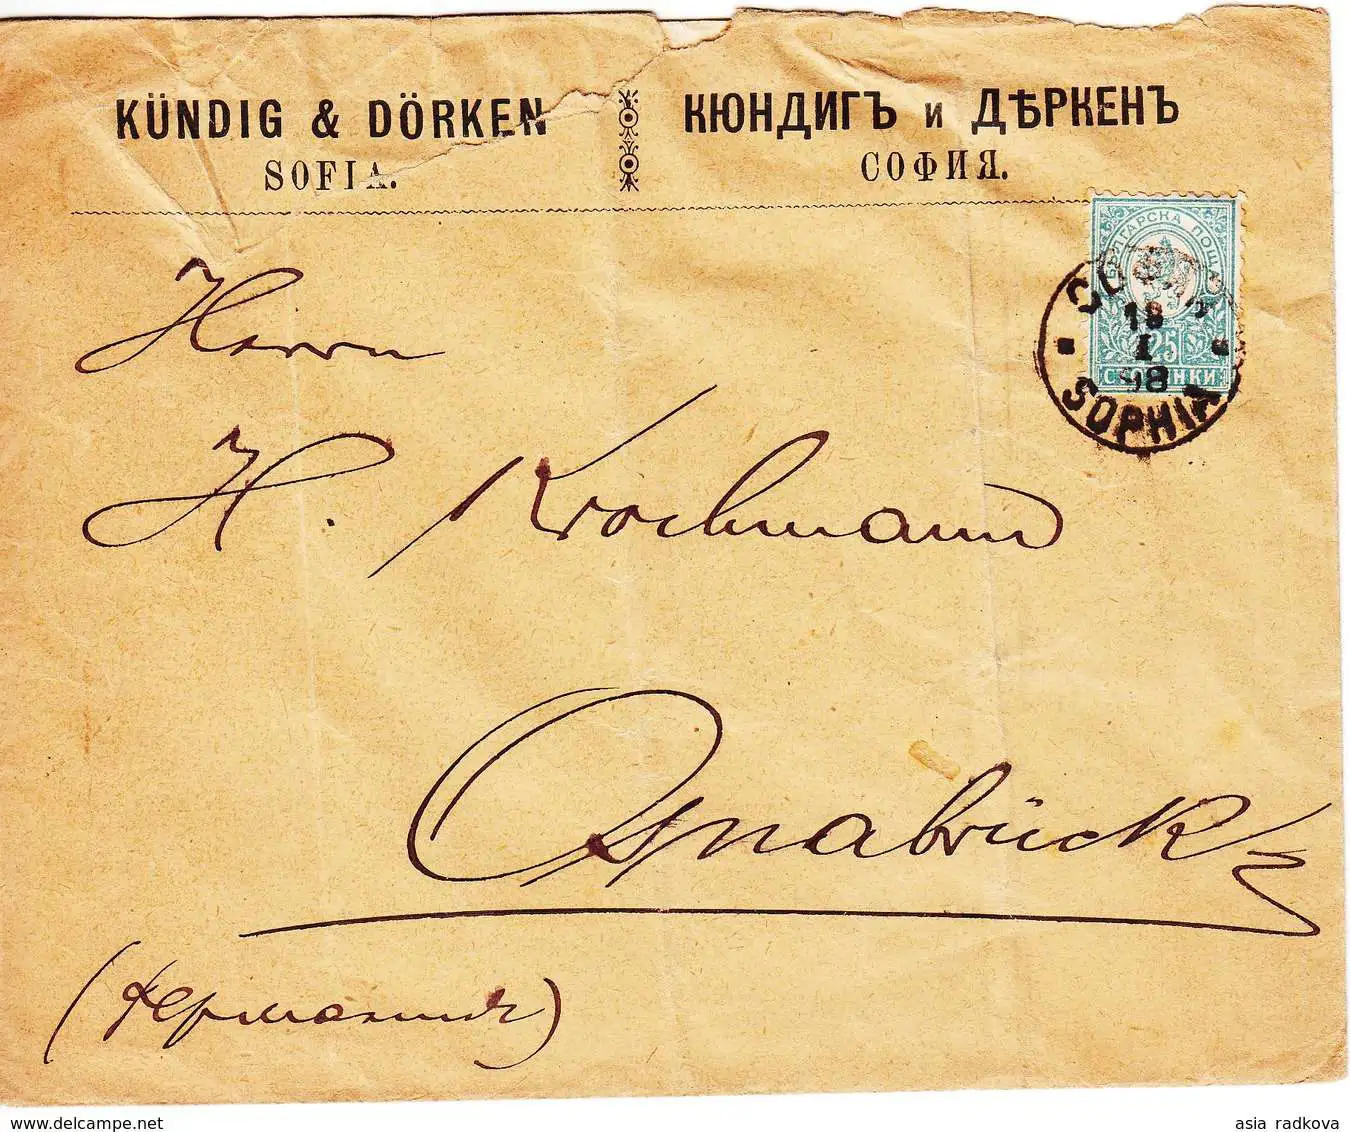 KÜNDIG & DÖRKEN
SOFIA.
КЮНДИГЪ и ДѢРКЕНЪ
СОФИЯ.
БЪЛГАРСКА ПОЩА
25
СТОТИНКИ
18
I
98
SOPHIA
Herrn
H. Krochmann
Osnabrück
(Германия)
www.delcampe.net
asia radkova